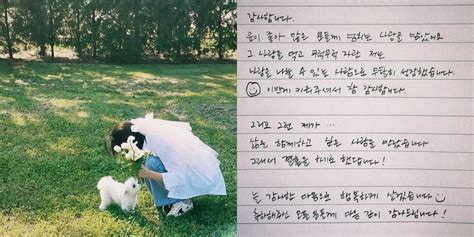 감사합니다.
운이 좋아 많은 분들께 넘치는 사랑을 받았어요
그 사랑을 먹고 무럭무럭 자란 저는
사랑을 나눌 수 있는 사람으로 무탈히 성장했습니다.
이렇게 키워주셔서 참 감사합니다.
그리고 그런 제가 ...
삶을 함께하고 싶은 사람을 만났습니다
그래서 결혼을 하기로 했답니다!
늘 감사한 마음으로 행복하게 살겠습니다
축하해주신 모든 분들께 다시 없이 감사드립니다!